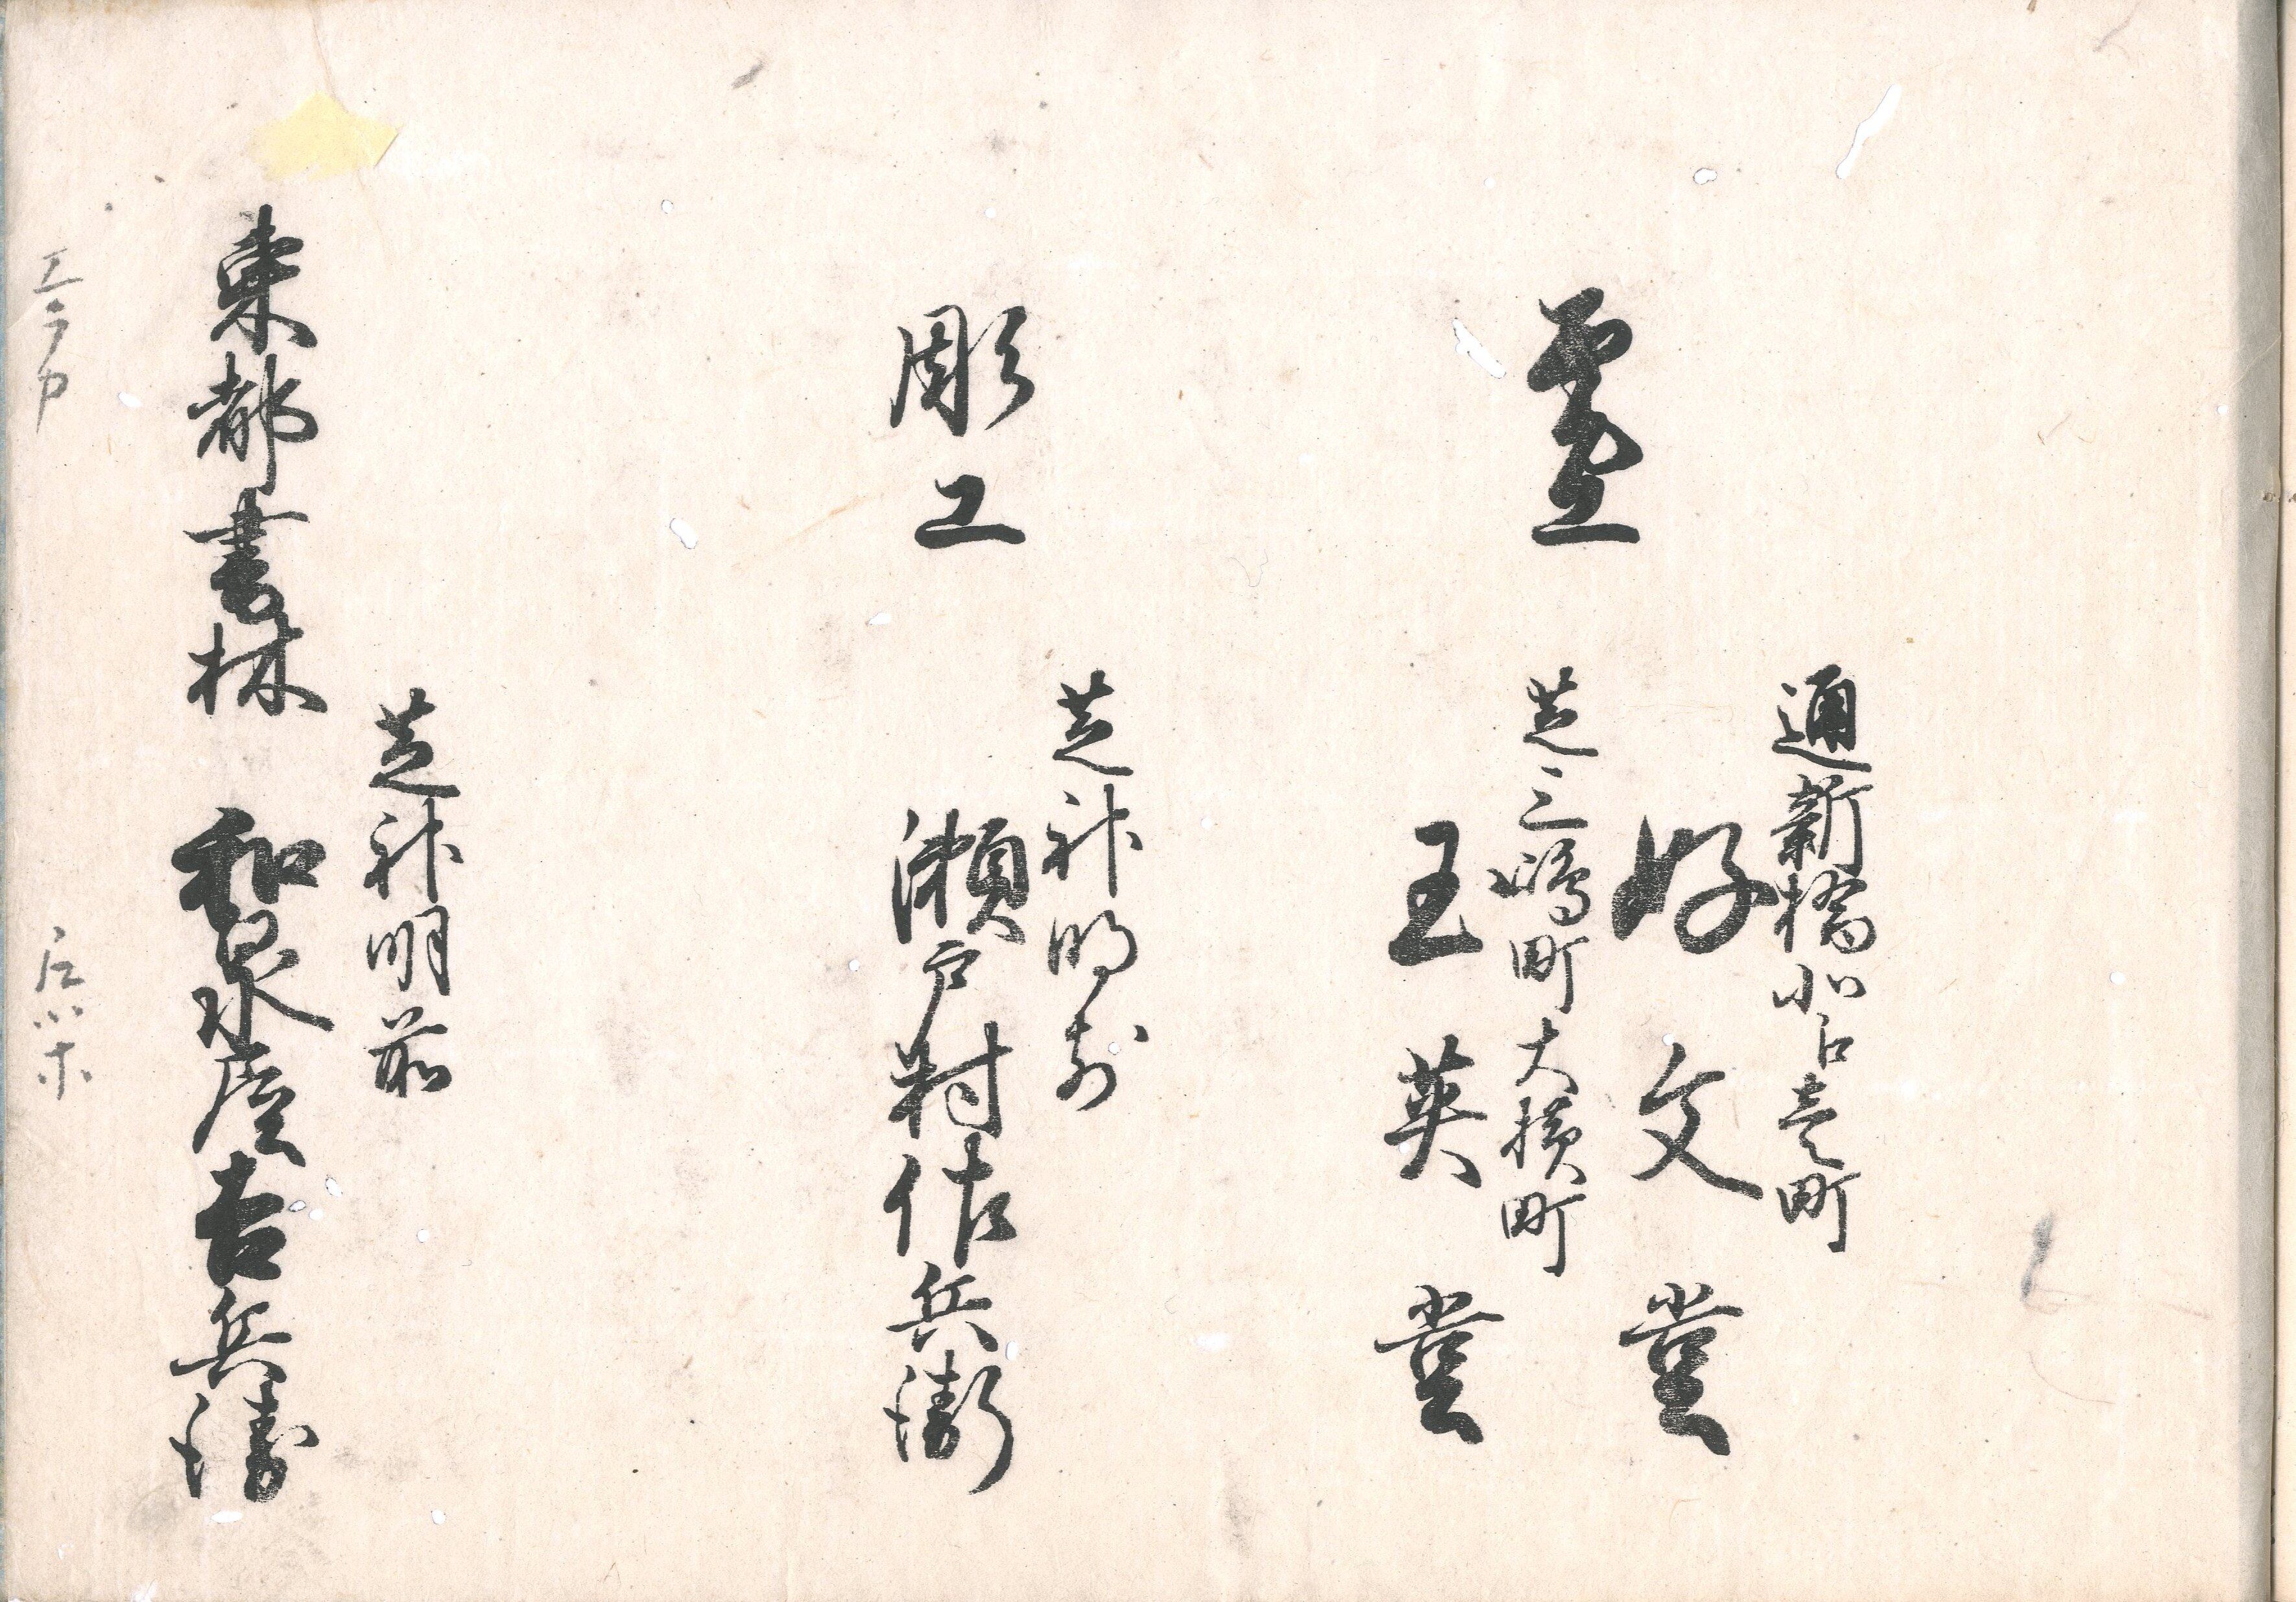 畫工
通新橋北
好文堂
芝三嶋町大横町
玉英堂
彫工
芝神明前
瀬戸村佐兵衛
芝神明前
東都書林 和泉屋吉兵衛